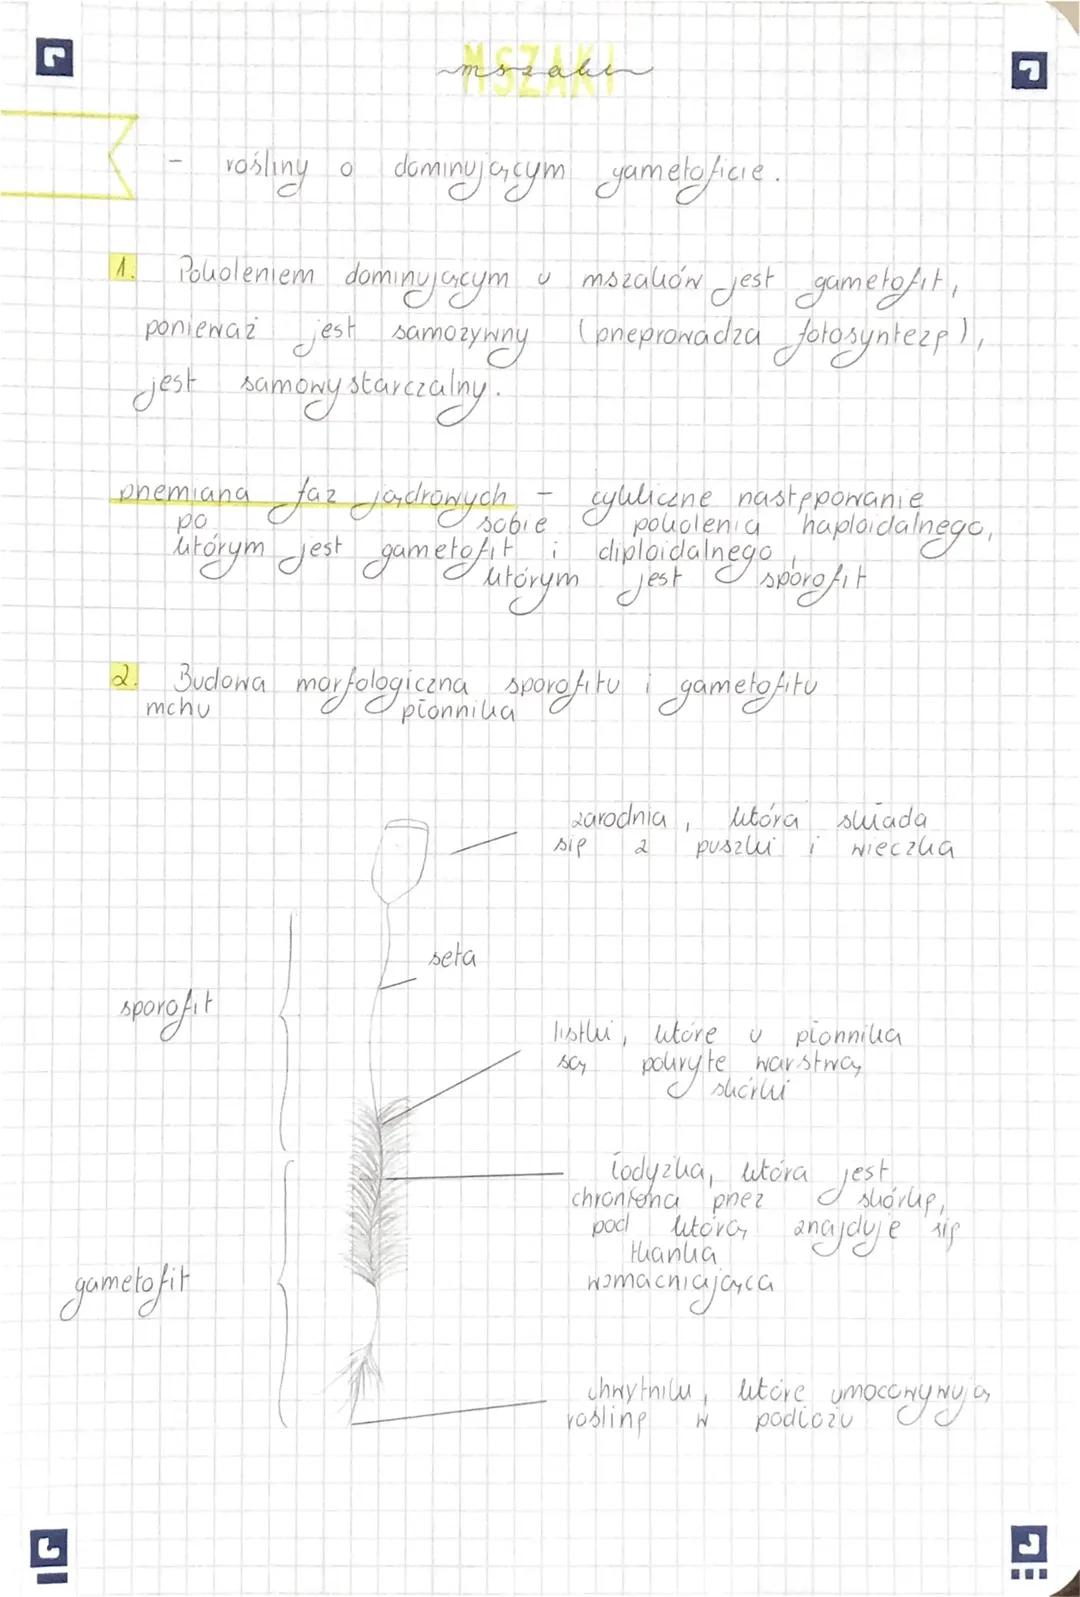 MSZAKI
mszaki
- rośliny o dominującym gametoficie.
1. Pokoleniem dominującym u mszaków jest gametofit,
ponieważ jest samożywny (przeprowadza fotosyntezę),
jest samowystarczalny.
przemiana faz jądrowych - cykliczne następowanie
po sobie pokolenia haploidalnego,
którym jest gametofit i diploidalnego,
którym jest sporofit
2. Budowa morfologiczna sporofitu i gametofitu
mchu płonnika
zarodnia, która składa
się z puszki i wieczka
seta
sporofit
listki, które u płonnika
są pokryte warstwą
skórki
łodyżka, która jest
chroniona przez skórkę,
pod którą znajduje się
tkanka
wzmacniająca
gametofit
chwytniki, które umocowywują
roślinę w podłożu